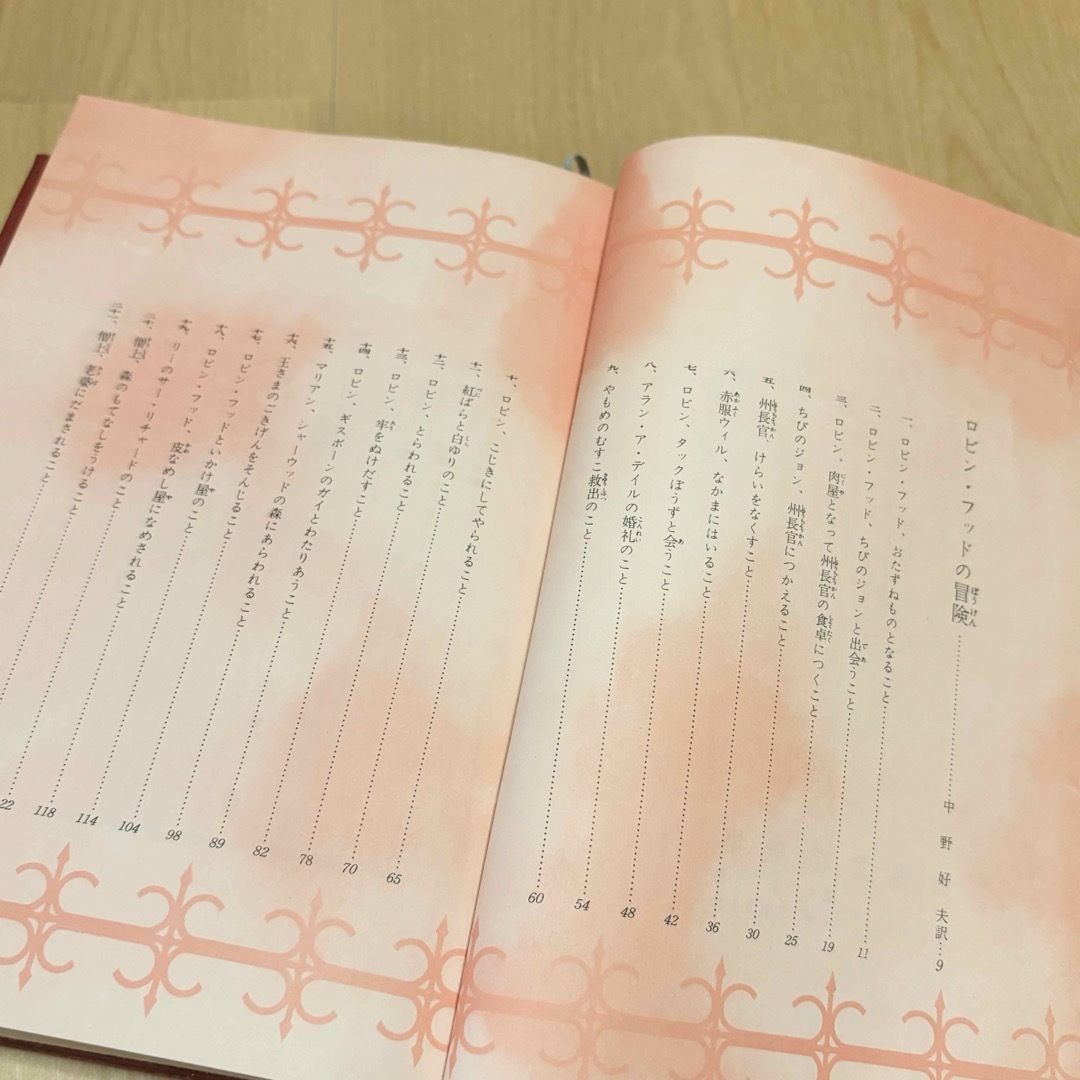 ロビン・フッドの冒険……中野好夫訳…9
一、ロビン・フッド、おたずねものとなること……11
二、ロビン・フッド、ちびのジョンと出会うこと……19
三、ロビン、肉屋となって州長官の食卓につくこと……25
四、ちびのジョン、州長官につかえること……30
五、州長官、けらいをなくすこと……36
六、赤服ウィル、なかまにはいること……42
七、ロビン、タックぼうずと会うこと……48
八、アラン・ア・デイルの婚礼のこと……54
九、やもめのむすこ救出のこと……60
十、ロビン、こじきにしてやられること……65
十一、紅ばらと白ゆりのこと……70
十二、ロビン、とらわれること……78
十三、ロビン、牢をぬけだすこと……82
十四、ロビン、ギスボーンのガイとわたりあうこと……89
十五、マリアン、シャーウッドの森にあらわれること……98
十六、王さまのごきげんをそんじること……104
十七、ロビン・フッドといかけ屋のこと……114
十八、ロビン・フッド、皮なめし屋になめされること……118
十九、リーのサー・リチャードのこと……22
二十、僧正、森のもてなしをうけること……
二十一、僧正、老婆にだまされること……